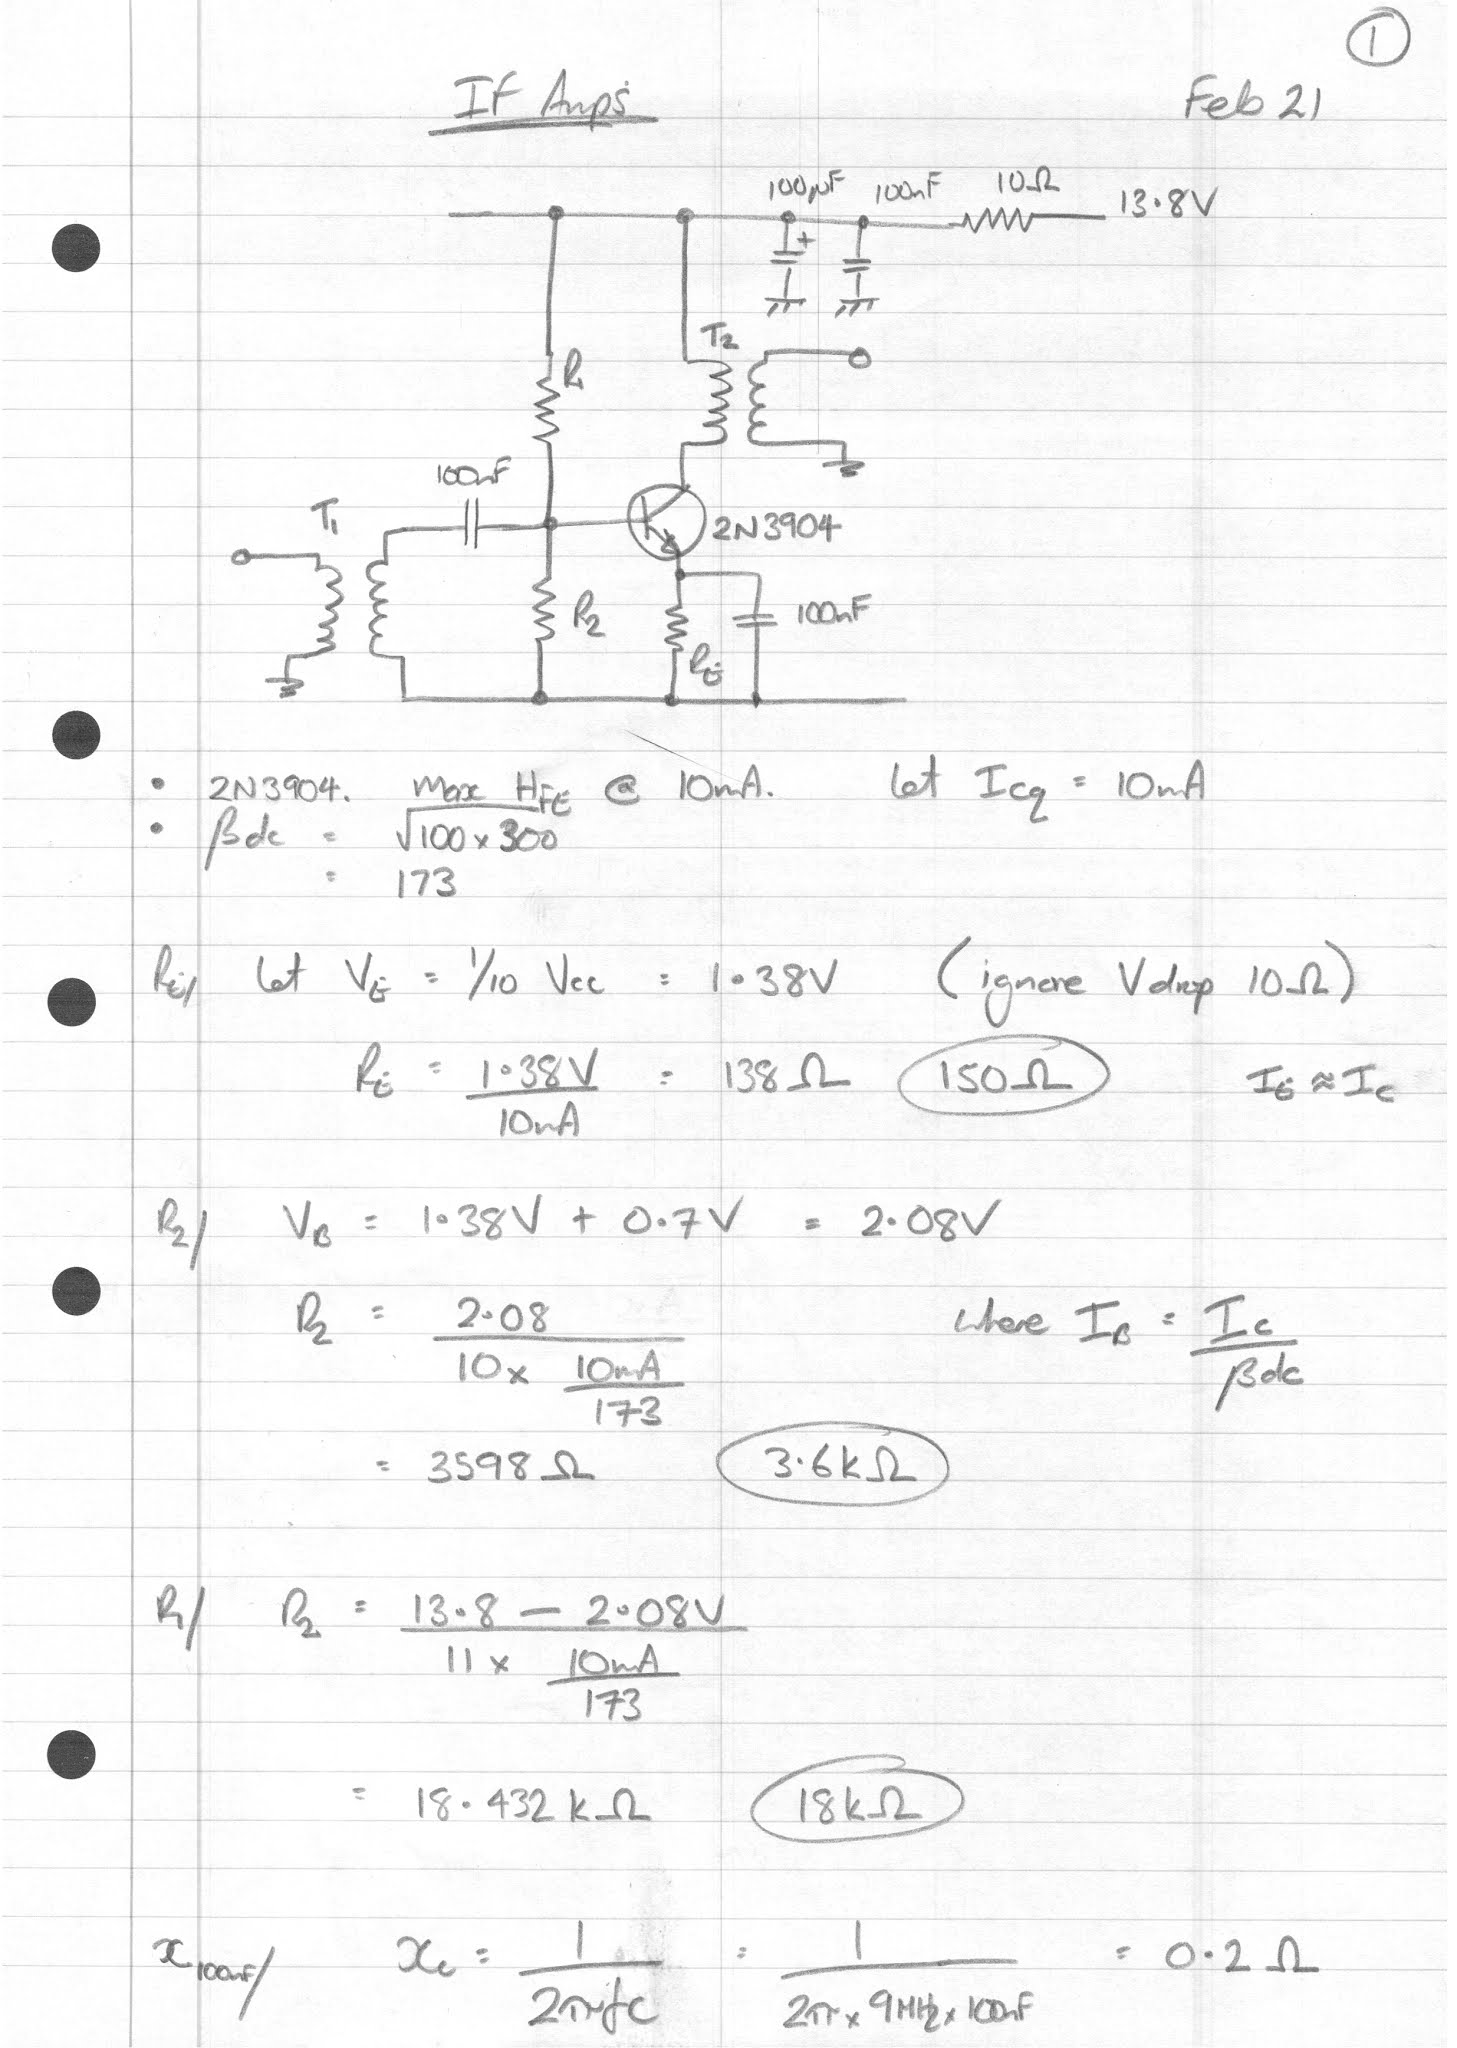 1
If Amps
Feb 21
100µF 100nF 10Ω 13.8V
T2
R1
100nF
T1
2N3904
R2 100nF
RE
• 2N3904. max HFE @ 10mA. let Icq = 10mA
• βdc = √100 x 300
= 173
RE/ let VE = 1/10 Vcc = 1.38V (ignore Vdrop 10Ω)
RE = 1.38V / 10mA = 138Ω 150Ω IE ≈ Ic
R2/ VB = 1.38V + 0.7V = 2.08V
R2 = 2.08 / 10 x 10mA / 173 where IB = Ic / βdc
= 3598Ω 3.6kΩ
R1/ R2 = 13.8 - 2.08V / 11 x 10mA / 173
= 18.432kΩ 18kΩ
x100nF/ xc = 1 / 2πfc = 1 / 2π x 9MHz x 100nF = 0.2Ω